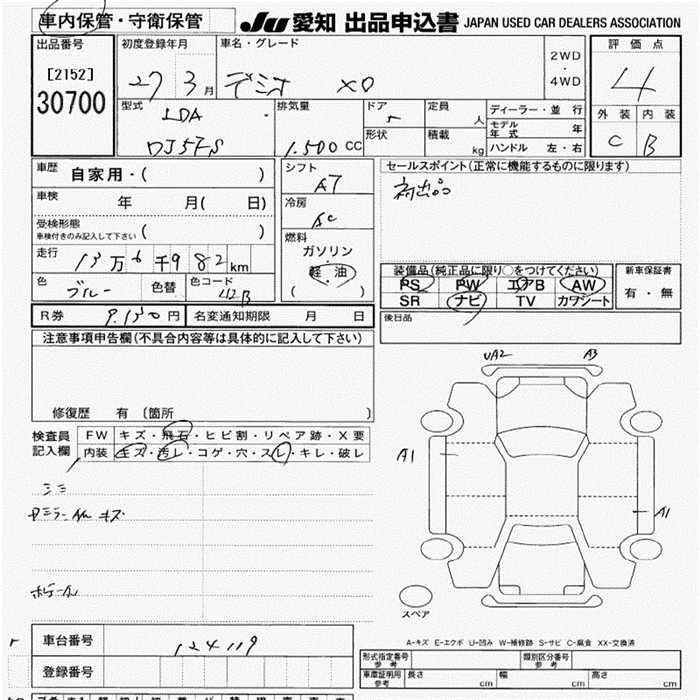 車内保管・守衛保管
JU 愛知 出品申込書 JAPAN USED CAR DEALERS ASSOCIATION
出品番号 [2152] 30700
初度登録年月 27 3月
車名・グレード デミオ XD
2WD・4WD
評価点 4
外装 C 内装 B
型式 LDA DJ5FS
排気量 1.500 CC
ドア 5
形状
定員 人
積載 kg
ディーラー・並行
モデル年式 年
ハンドル 左・右
車歴 自家用・( )
車検 年 月( 日)
受検形態 車検付きのみ記入して下さい ( )
走行 13万6千982km
色 ブルー 色替 色コード 42B
シフト A7
冷房 AC
燃料 ガソリン・軽・油 ( )
セールスポイント(正常に機能するものに限ります)
初出品
装備品(純正品に限り○をつけてください)
PS PW エアB AW
SR ナビ TV カワシート
新車保証書 有・無
後日品
R券 9.130円 名変通知期限 月 日
注意事項申告欄(不具合内容等は具体的に記入して下さい)
修復歴 有 〔箇所 〕
検査員記入欄
FW キズ・飛石・ヒビ割・リペア跡・X要
内装 キズ・汚レ・コゲ・穴・スレ・キレ・破レ
UA2 A3
A1
A1
スペア
A-キズ E-エクボ U-凹み W-補修跡 S-サビ C-腐食 XX-交換済
車台番号 124119
登録番号
形式指定番号 参考
類別区分番号 参考
車庫証明用 参考 長さ cm 幅 cm 高さ cm